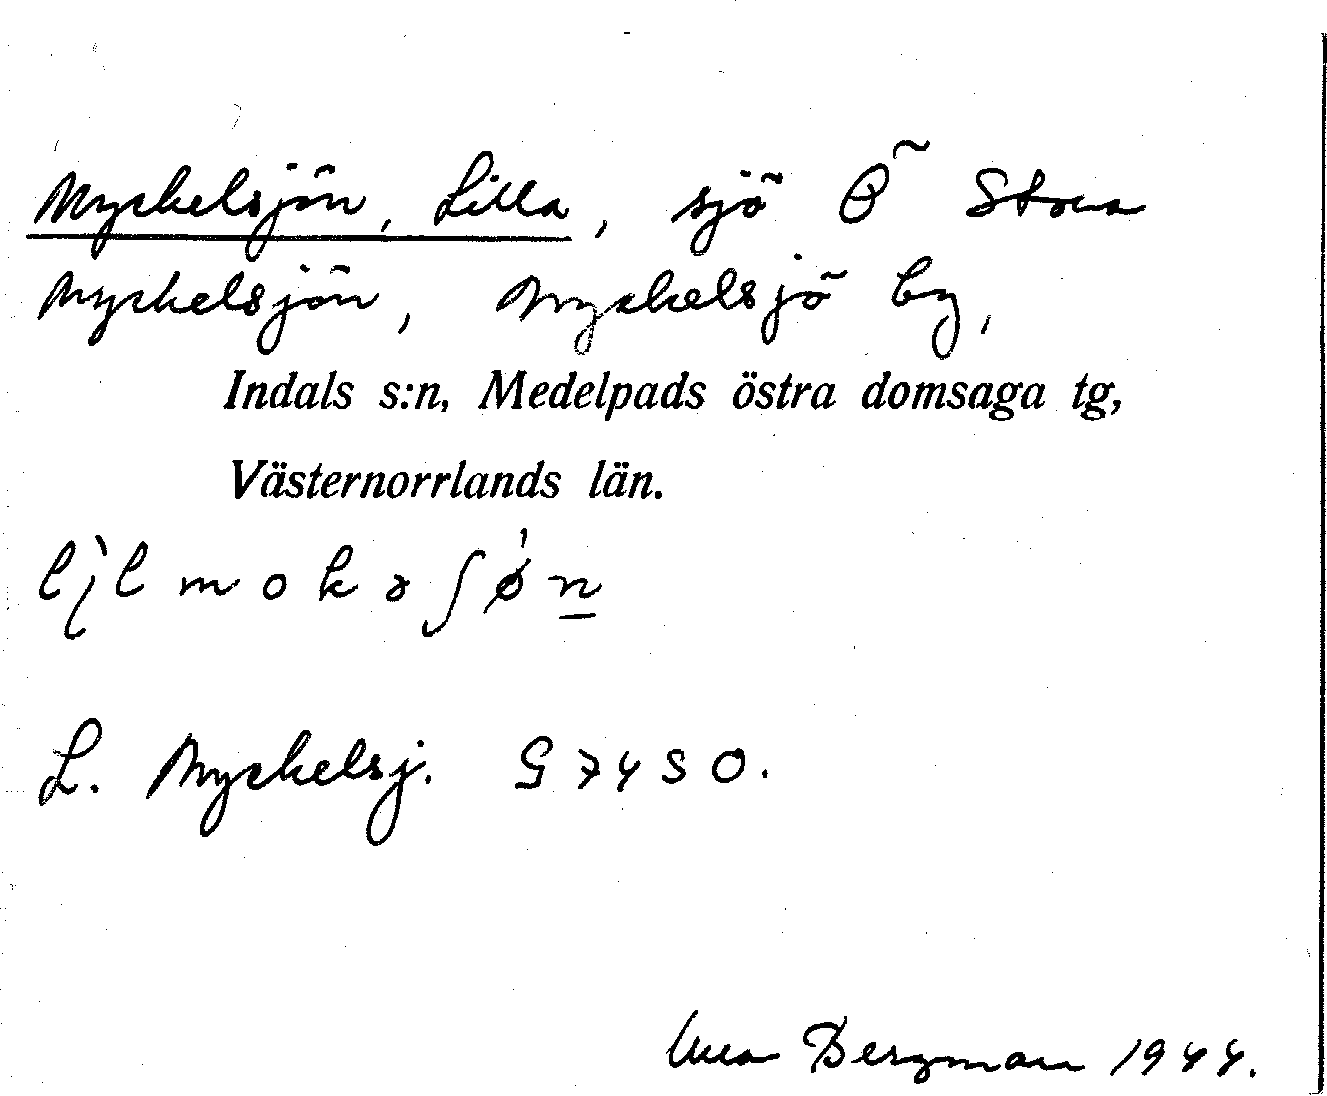 Myckelsjön, Lilla, sjö Ö Stora
Myckelsjön, Myckelsjö by,
Indals s:n, Medelpads östra domsaga tg,
Västernorrlands län.
L. Myckelsj. G 74 S O.
Bergman 1944.